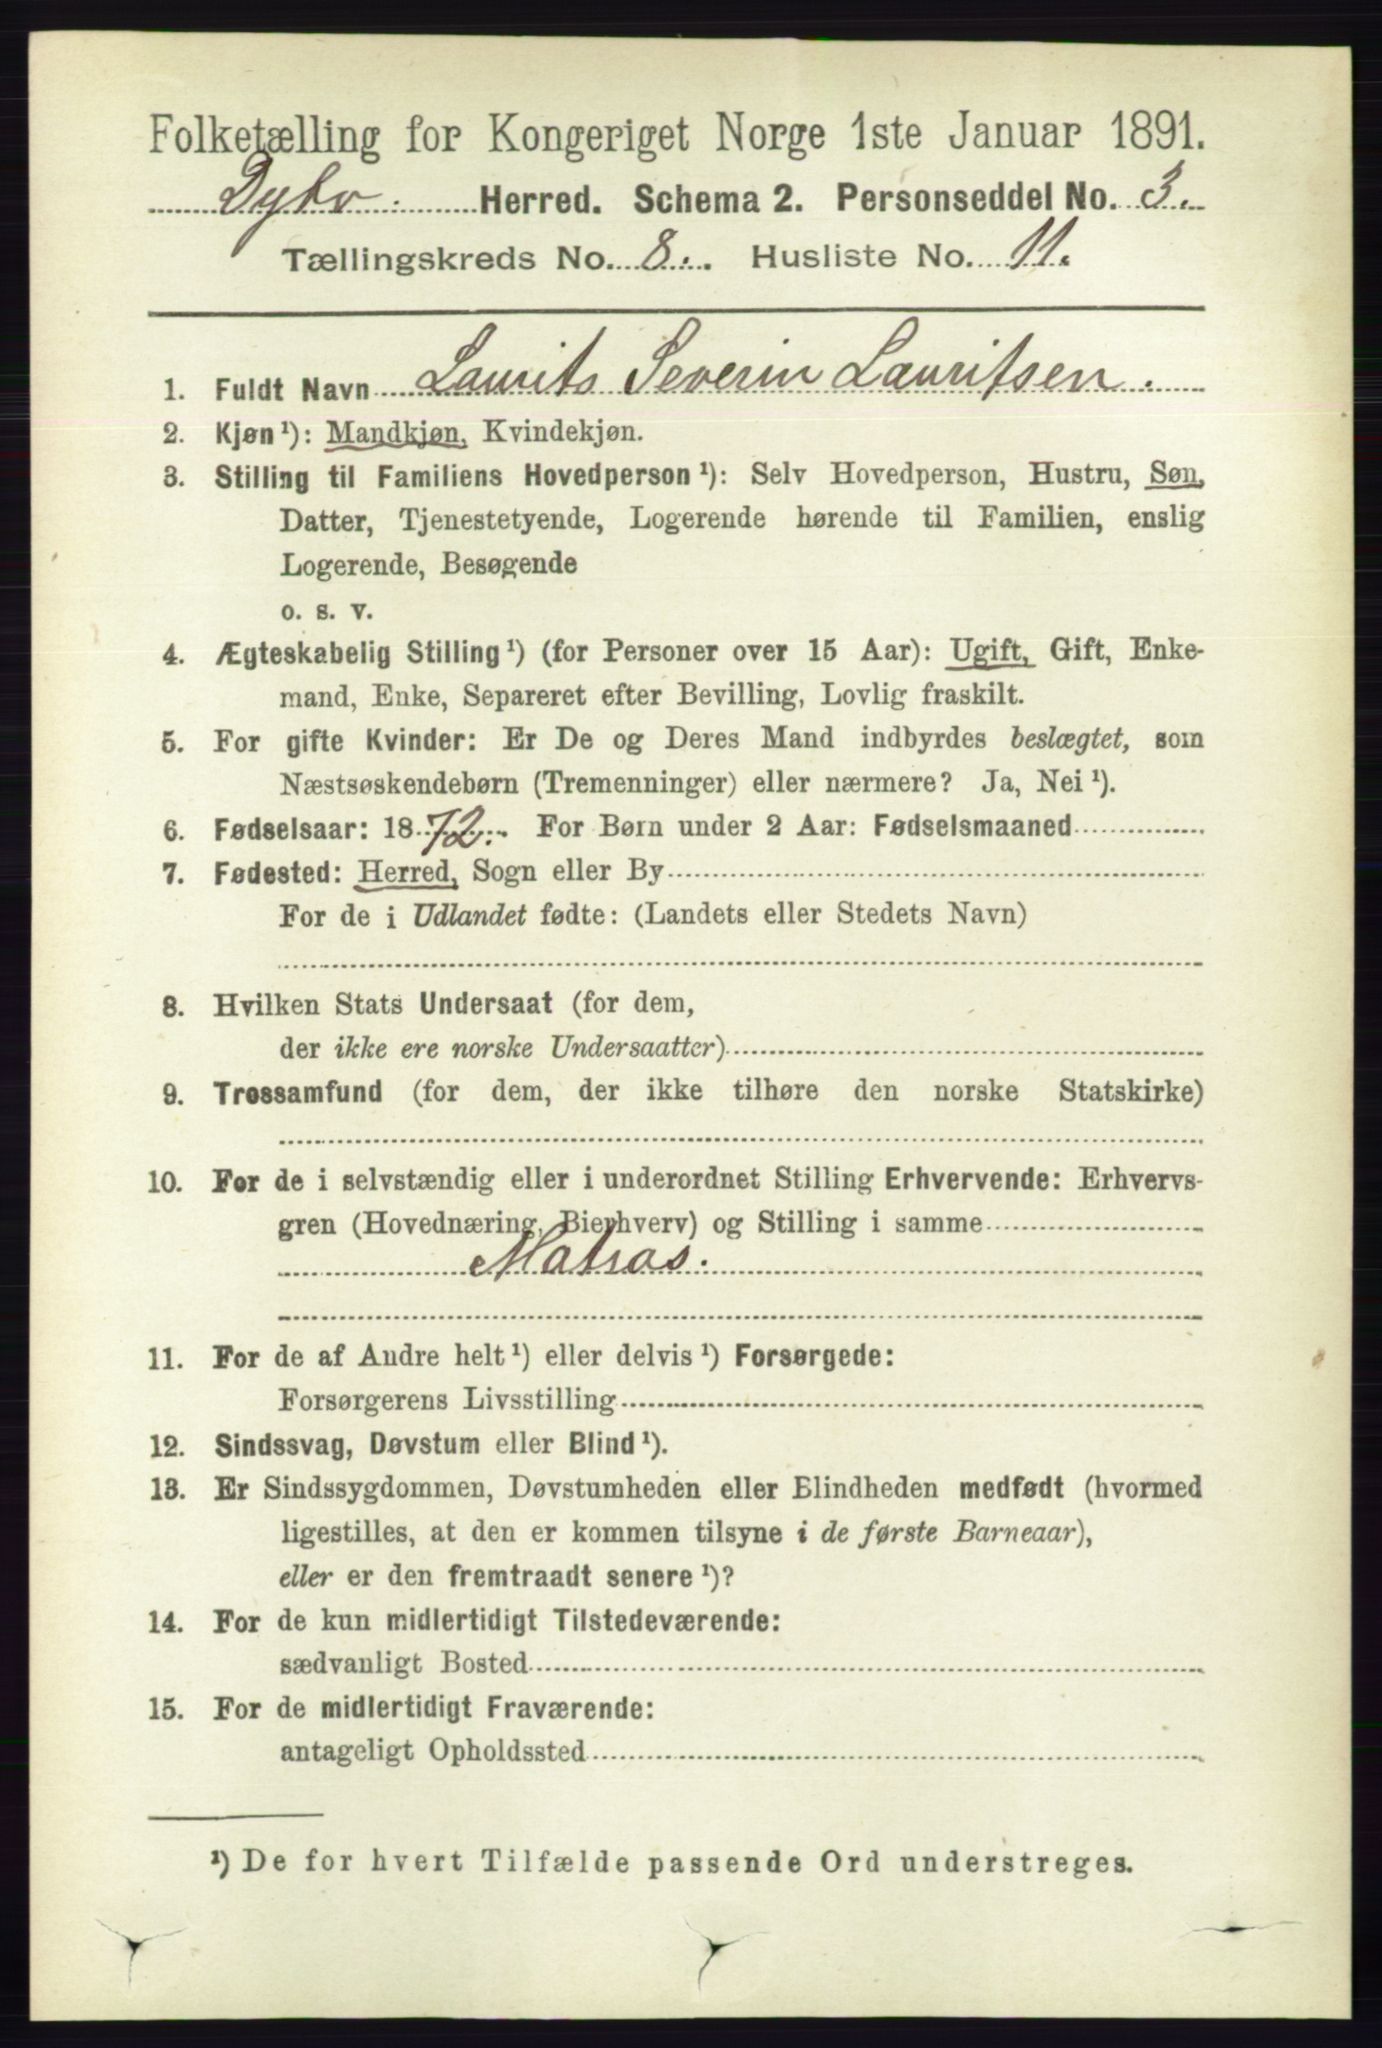 Folketælling for Kongeriget Norge 1ste Januar 1891.
Dybv. Herred. Schema 2. Personseddel No. 3.
Tællingskreds No. 8. Husliste No. 11.
1. Fuldt Navn Laurits Severin Lauritsen.
2. Kjøn¹): Mandkjøn, Kvindekjøn.
3. Stilling til Familiens Hovedperson¹): Selv Hovedperson, Hustru, Søn,
Datter, Tjenestetyende, Logerende hørende til Familien, enslig
Logerende, Besøgende
o. s. v.
4. Ægteskabelig Stilling¹) (for Personer over 15 Aar): Ugift, Gift, Enke-
mand, Enke, Separeret efter Bevilling, Lovlig fraskilt.
5. For gifte Kvinder: Er De og Deres Mand indbyrdes beslægtet, som
Næstsøskendebørn (Tremenninger) eller nærmere? Ja, Nei¹).
6. Fødselsaar: 1872. For Børn under 2 Aar: Fødselsmaaned
7. Fødested: Herred, Sogn eller By
For de i Udlandet fødte: (Landets eller Stedets Navn)
8. Hvilken Stats Undersaat (for dem,
der ikke ere norske Undersaatter)
9. Trossamfund (for dem, der ikke tilhøre den norske Statskirke)
10. For de i selvstændig eller i underordnet Stilling Erhvervende: Erhvervs-
gren (Hovednæring, Bierhverv) og Stilling i samme
Matros.
11. For de af Andre helt¹) eller delvis¹) Forsørgede:
Forsørgerens Livsstilling
12. Sindssvag, Døvstum eller Blind¹).
13. Er Sindssygdommen, Døvstumheden eller Blindheden medfødt (hvormed
ligestilles, at den er kommen tilsyne i de første Barneaar),
eller er den fremtraadt senere¹)?
14. For de kun midlertidigt Tilstedeværende:
sædvanligt Bosted
15. For de midlertidigt Fraværende:
antageligt Opholdssted
¹) De for hvert Tilfælde passende Ord understreges.